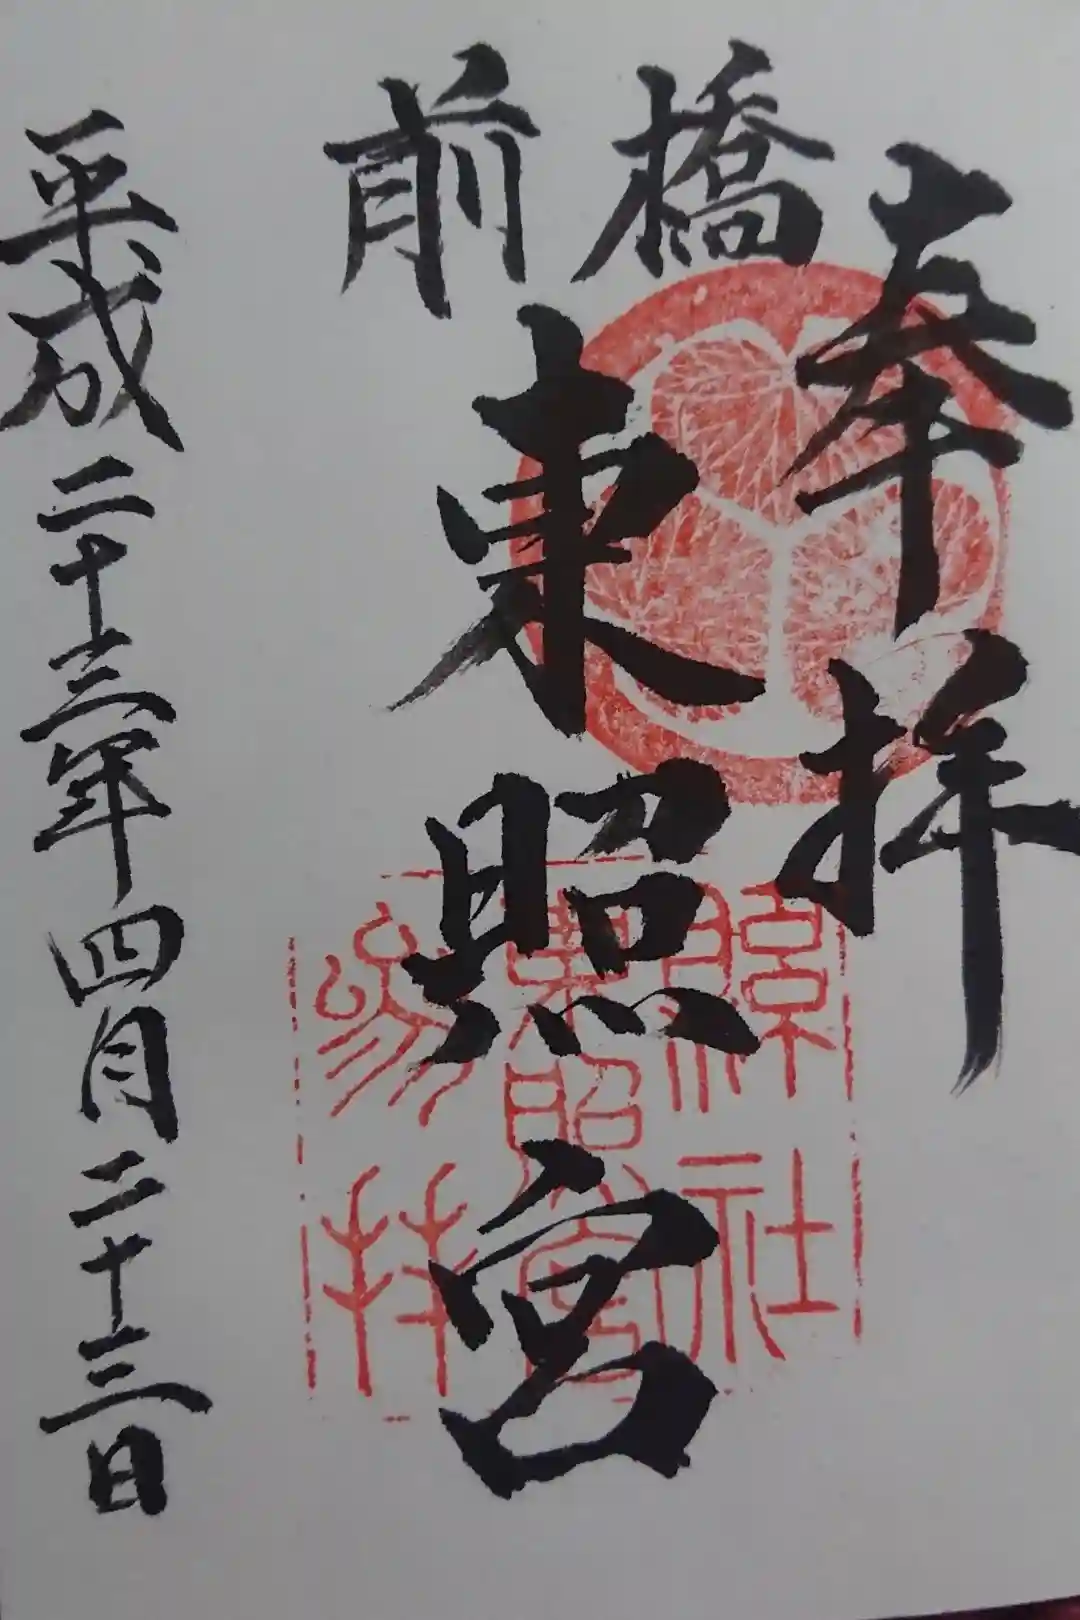 奉拝
前橋
東照宮
平成二十三年四月二十三日
縣社
東照宮
參拜